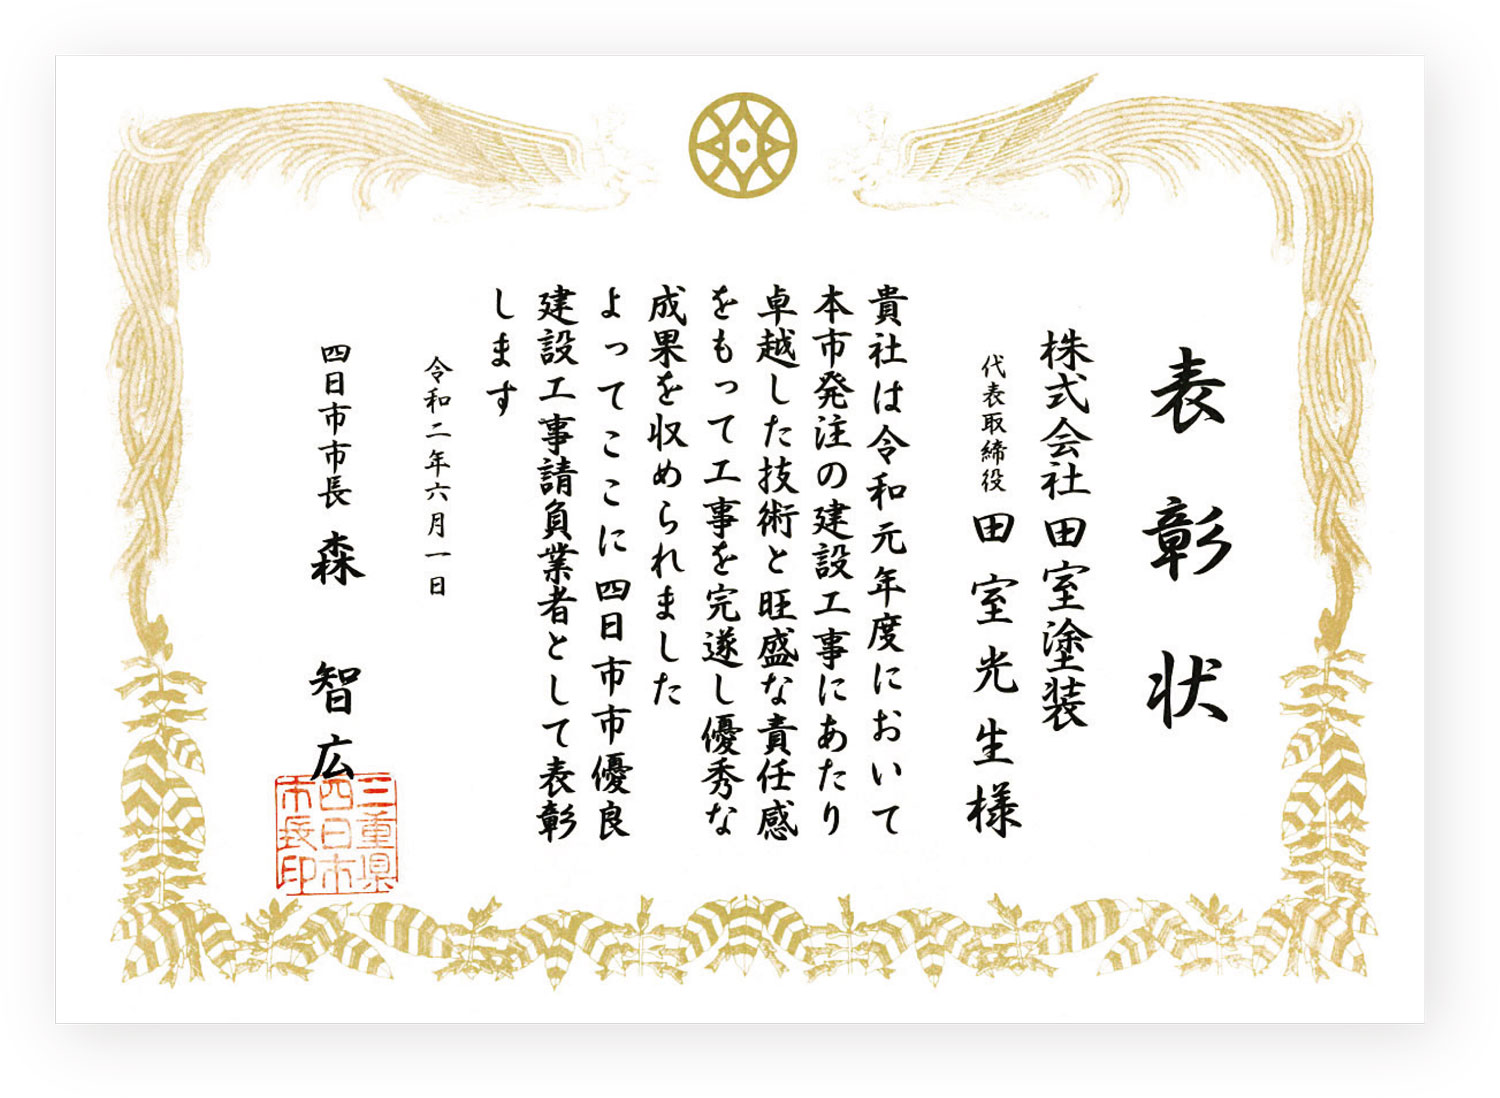 表彰状
株式会社田室塗装
代表取締役 田室光生様
貴社は令和元年度において
本市発注の建設工事にあたり
卓越した技術と旺盛な責任感
をもって工事を完遂し優秀な
成果を収められました
よってここに四日市市優良
建設工事請負業者として表彰
します
令和二年六月一日
四日市市長 森 智広
三重県
四日市
市長印